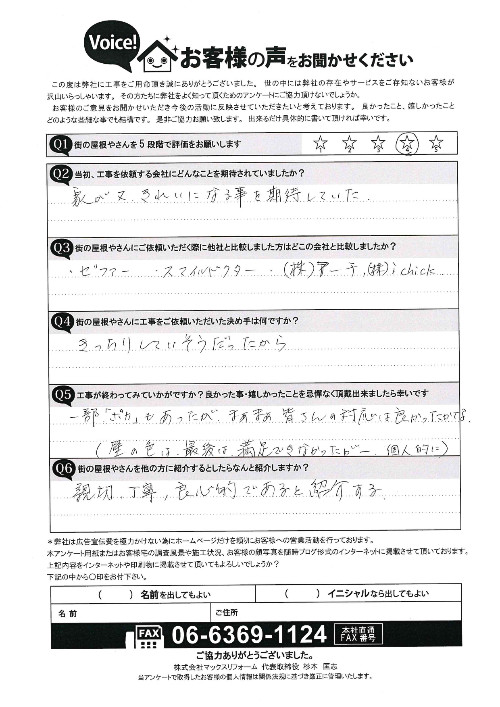 Voice! お客様の声をお聞かせください
この度は弊社に工事をご用命頂き誠にありがとうございました。世の中には弊社の存在やサービスをご存知ないお客様が
沢山いらっしゃいます。その方たちに弊社をよく知って頂くためのアンケートにご協力頂けないでしょうか。
お客様のご意見をお聞かせいただき今後の活動に反映させていただきたいと考えております。良かったこと、嬉しかったこと
どのような些細な事でも結構です。是非ご協力お願い致します。出来るだけ具体的に書いて頂ければ幸いです。
Q1 街の屋根やさんを5段階で評価をお願いします ☆1 ☆2 ☆3 ☆4 ☆5
Q2 当初、工事を依頼する会社にどんなことを期待されていましたか?
家が又、きれいになる事を期待していた.
Q3 街の屋根やさんにご依頼いただく際に他社と比較しました方はどこの会社と比較しましたか?
・ゼファー ・スマイルドクター ・(株)第一予,(株)i chick
Q4 街の屋根やさんに工事をご依頼いただいた決め手は何ですか?
きっちりしていそうだったから
Q5 工事が終わってみていかがですか?良かった事・嬉しかったことを忌憚なく頂戴出来ましたら幸いです
一部「ポカ」もあったが、まあまあ皆さんの対応は良かったかな.
(壁の色は、最後は満足できなかったがー 個人的に)
Q6 街の屋根やさんを他の方に紹介するとしたらなんと紹介しますか?
親切、丁寧、良心的であると紹介する.
*弊社は広告宣伝費を極力かけない為にホームページだけを頼りにお客様への営業活動を行っております。
本アンケート用紙またはお客様宅の調査風景や施工状況、お客様の顔写真を随時ブログ形式のインターネットに掲載させて頂いております。
上記内容をインターネットや印刷物に掲載させて頂いてもよろしいでしょうか?
下記の中から〇印をお付下さい。
( ) 名前を出してもよい ( ) イニシャルなら出してもよい
名前 ご住所
FAX 06-6369-1124 本社直通 FAX番号
ご協力ありがとうございました。
株式会社マックスリフォーム 代表取締役 杉本 匡志
当アンケートで取得したお客様の個人情報は関係法規に基づき適正に管理いたします。